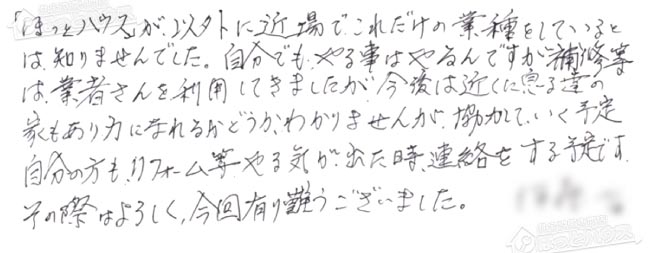 「ほっとハウス」が、以外に近場でこれだけの業種をしていると
は、知りませんでした。自分でも、やる事はやるんですが補修等
は、業者さんを利用してきましたが、今後は近くに息子達の
家もあり力になれるかどうかわかりませんが、協力していく予定
自分の方も、リフォーム等やる気が出た時、連絡をする予定です。
その際はよろしく、今回有り難うございました。